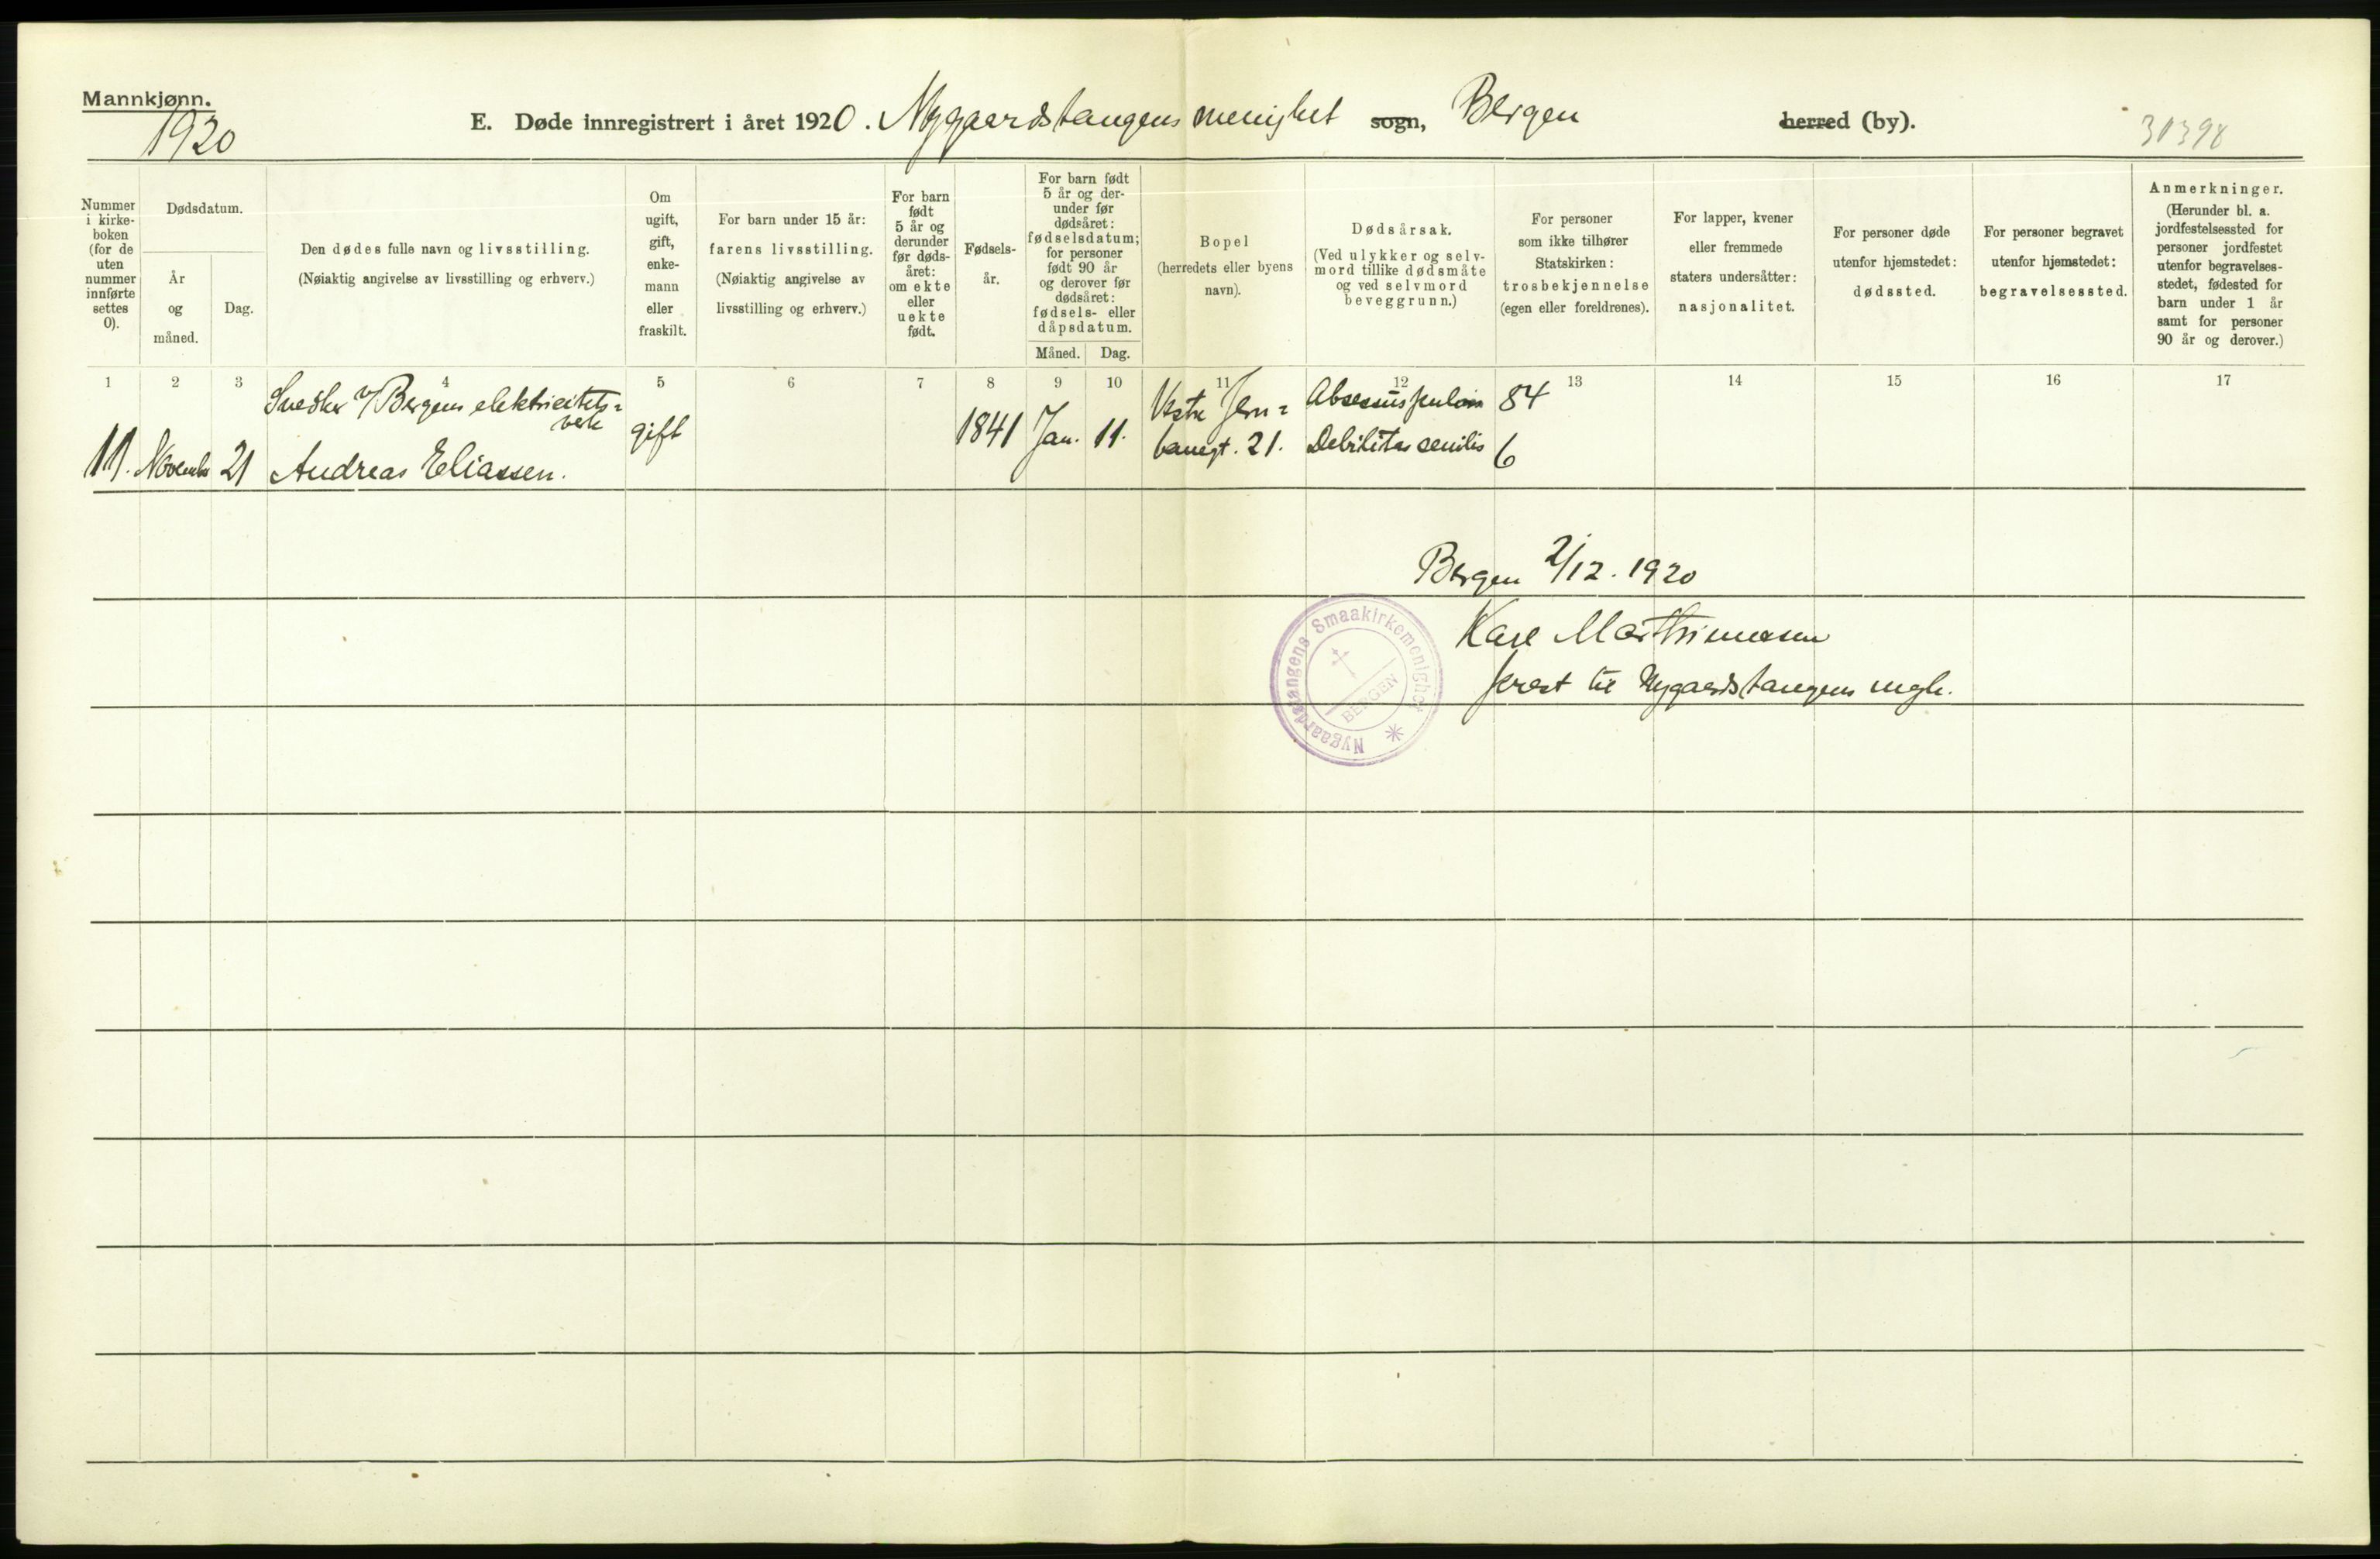 Mannkjønn.
1920
E. Døde innregistrert i året 1920. Nygaardstangens menighet sogn, Bergen herred (by).
31398
Nummer i kirke-boken (for de uten nummer innførte settes 0).
Dødsdatum.
År og måned.
Dag.
Den dødes fulle navn og livsstilling.
(Nøiaktig angivelse av livsstilling og erhverv.)
Om ugift, gift, enke-mann eller fraskilt.
For barn under 15 år:
farens livsstilling.
(Nøiaktig angivelse av livsstilling og erhverv.)
For barn født 5 år og derunder før døds-året: om ekte eller uekte født.
Fødsels-år.
For barn født 5 år og der-under før dødsåret: fødselsdatum; for personer født 90 år og derover før dødsåret: fødsels- eller dåpsdatum.
Måned.
Dag.
Bopel
(herredets eller byens navn).
Dødsårsak.
(Ved ulykker og selv-mord tillike dødsmåte og ved selvmord beveggrunn.)
For personer som ikke tilhører Statskirken:
trosbekjennelse
(egen eller foreldrenes).
For lapper, kvener eller fremmede staters undersåtter:
nasjonalitet.
For personer døde utenfor hjemstedet:
dødssted.
For personer begravet utenfor hjemstedet:
begravelsessted.
Anmerkninger.
(Herunder bl. a. jordfestelsessted for personer jordfestet utenfor begravelses-stedet, fødested for barn under 1 år samt for personer 90 år og derover.)
1 2 3 4 5 6 7 8 9 10 11 12 13 14 15 16 17
Snedker v/ Bergens elektricitets=
verk
11. November 21 Andreas Eliassen. gift 1841 Jan. 11.
Vestre Jern=
banegt. 21.
Absessus pulm 84
Debilitas senilis 6
Bergen 2/12. 1920
Karl Marthinussen
prest til Nygaardstangens mgh.
Nygaardstangens Smaakirkemenighet
BERGEN